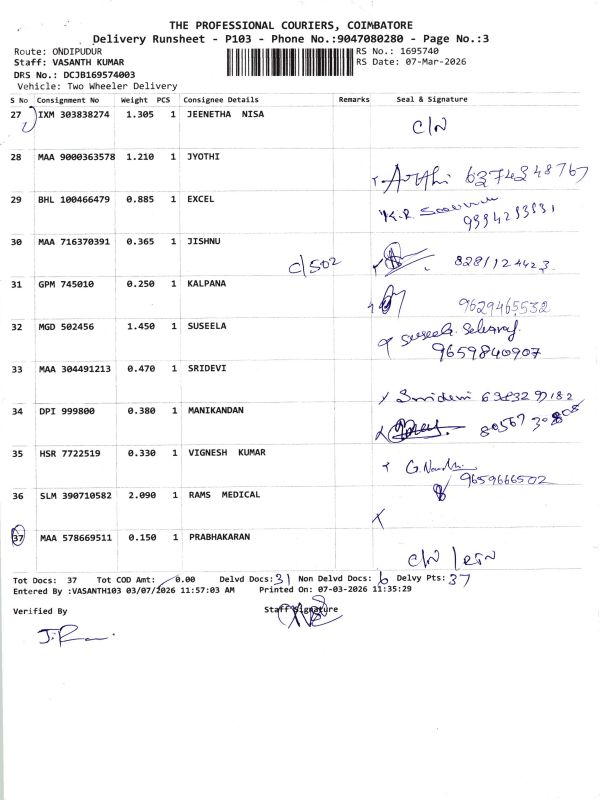 THE PROFESSIONAL COURIERS, COIMBATORE
Delivery Runsheet - P103 - Phone No.:9047080280 - Page No.:3
Route: ONDIPUDUR RS No.: 1695740
Staff: VASANTH KUMAR RS Date: 07-Mar-2026
DRS No.: DCJB169574003
Vehicle: Two Wheeler Delivery
S No Consignment No Weight PCS Consignee Details Remarks Seal & Signature
27 IXM 303838274 1.305 1 JEENETHA NISA
C/N
28 MAA 9000363578 1.210 1 JYOTHI
6374348767
29 BHL 100466479 0.885 1 EXCEL
K.R.
30 MAA 716370391 0.365 1 JISHNU
C/502
8281124423
31 GPM 745010 0.250 1 KALPANA
9629465532
32 MGD 502456 1.450 1 SUSEELA
9659840907
33 MAA 304491213 0.470 1 SRIDEVI
Sridevi
34 DPI 999800 0.380 1 MANIKANDAN
35 HSR 7722519 0.330 1 VIGNESH KUMAR
9659666502
36 SLM 390710582 2.090 1 RAMS MEDICAL
X
37 MAA 578669511 0.150 1 PRABHAKARAN
C/N
Tot Docs: 37 Tot COD Amt: 0.00 Delvd Docs: 31 Non Delvd Docs: 6 Delvy Pts: 37
Entered By :VASANTH103 03/07/2026 11:57:03 AM Printed On: 07-03-2026 11:35:29
Verified By Staff Signature